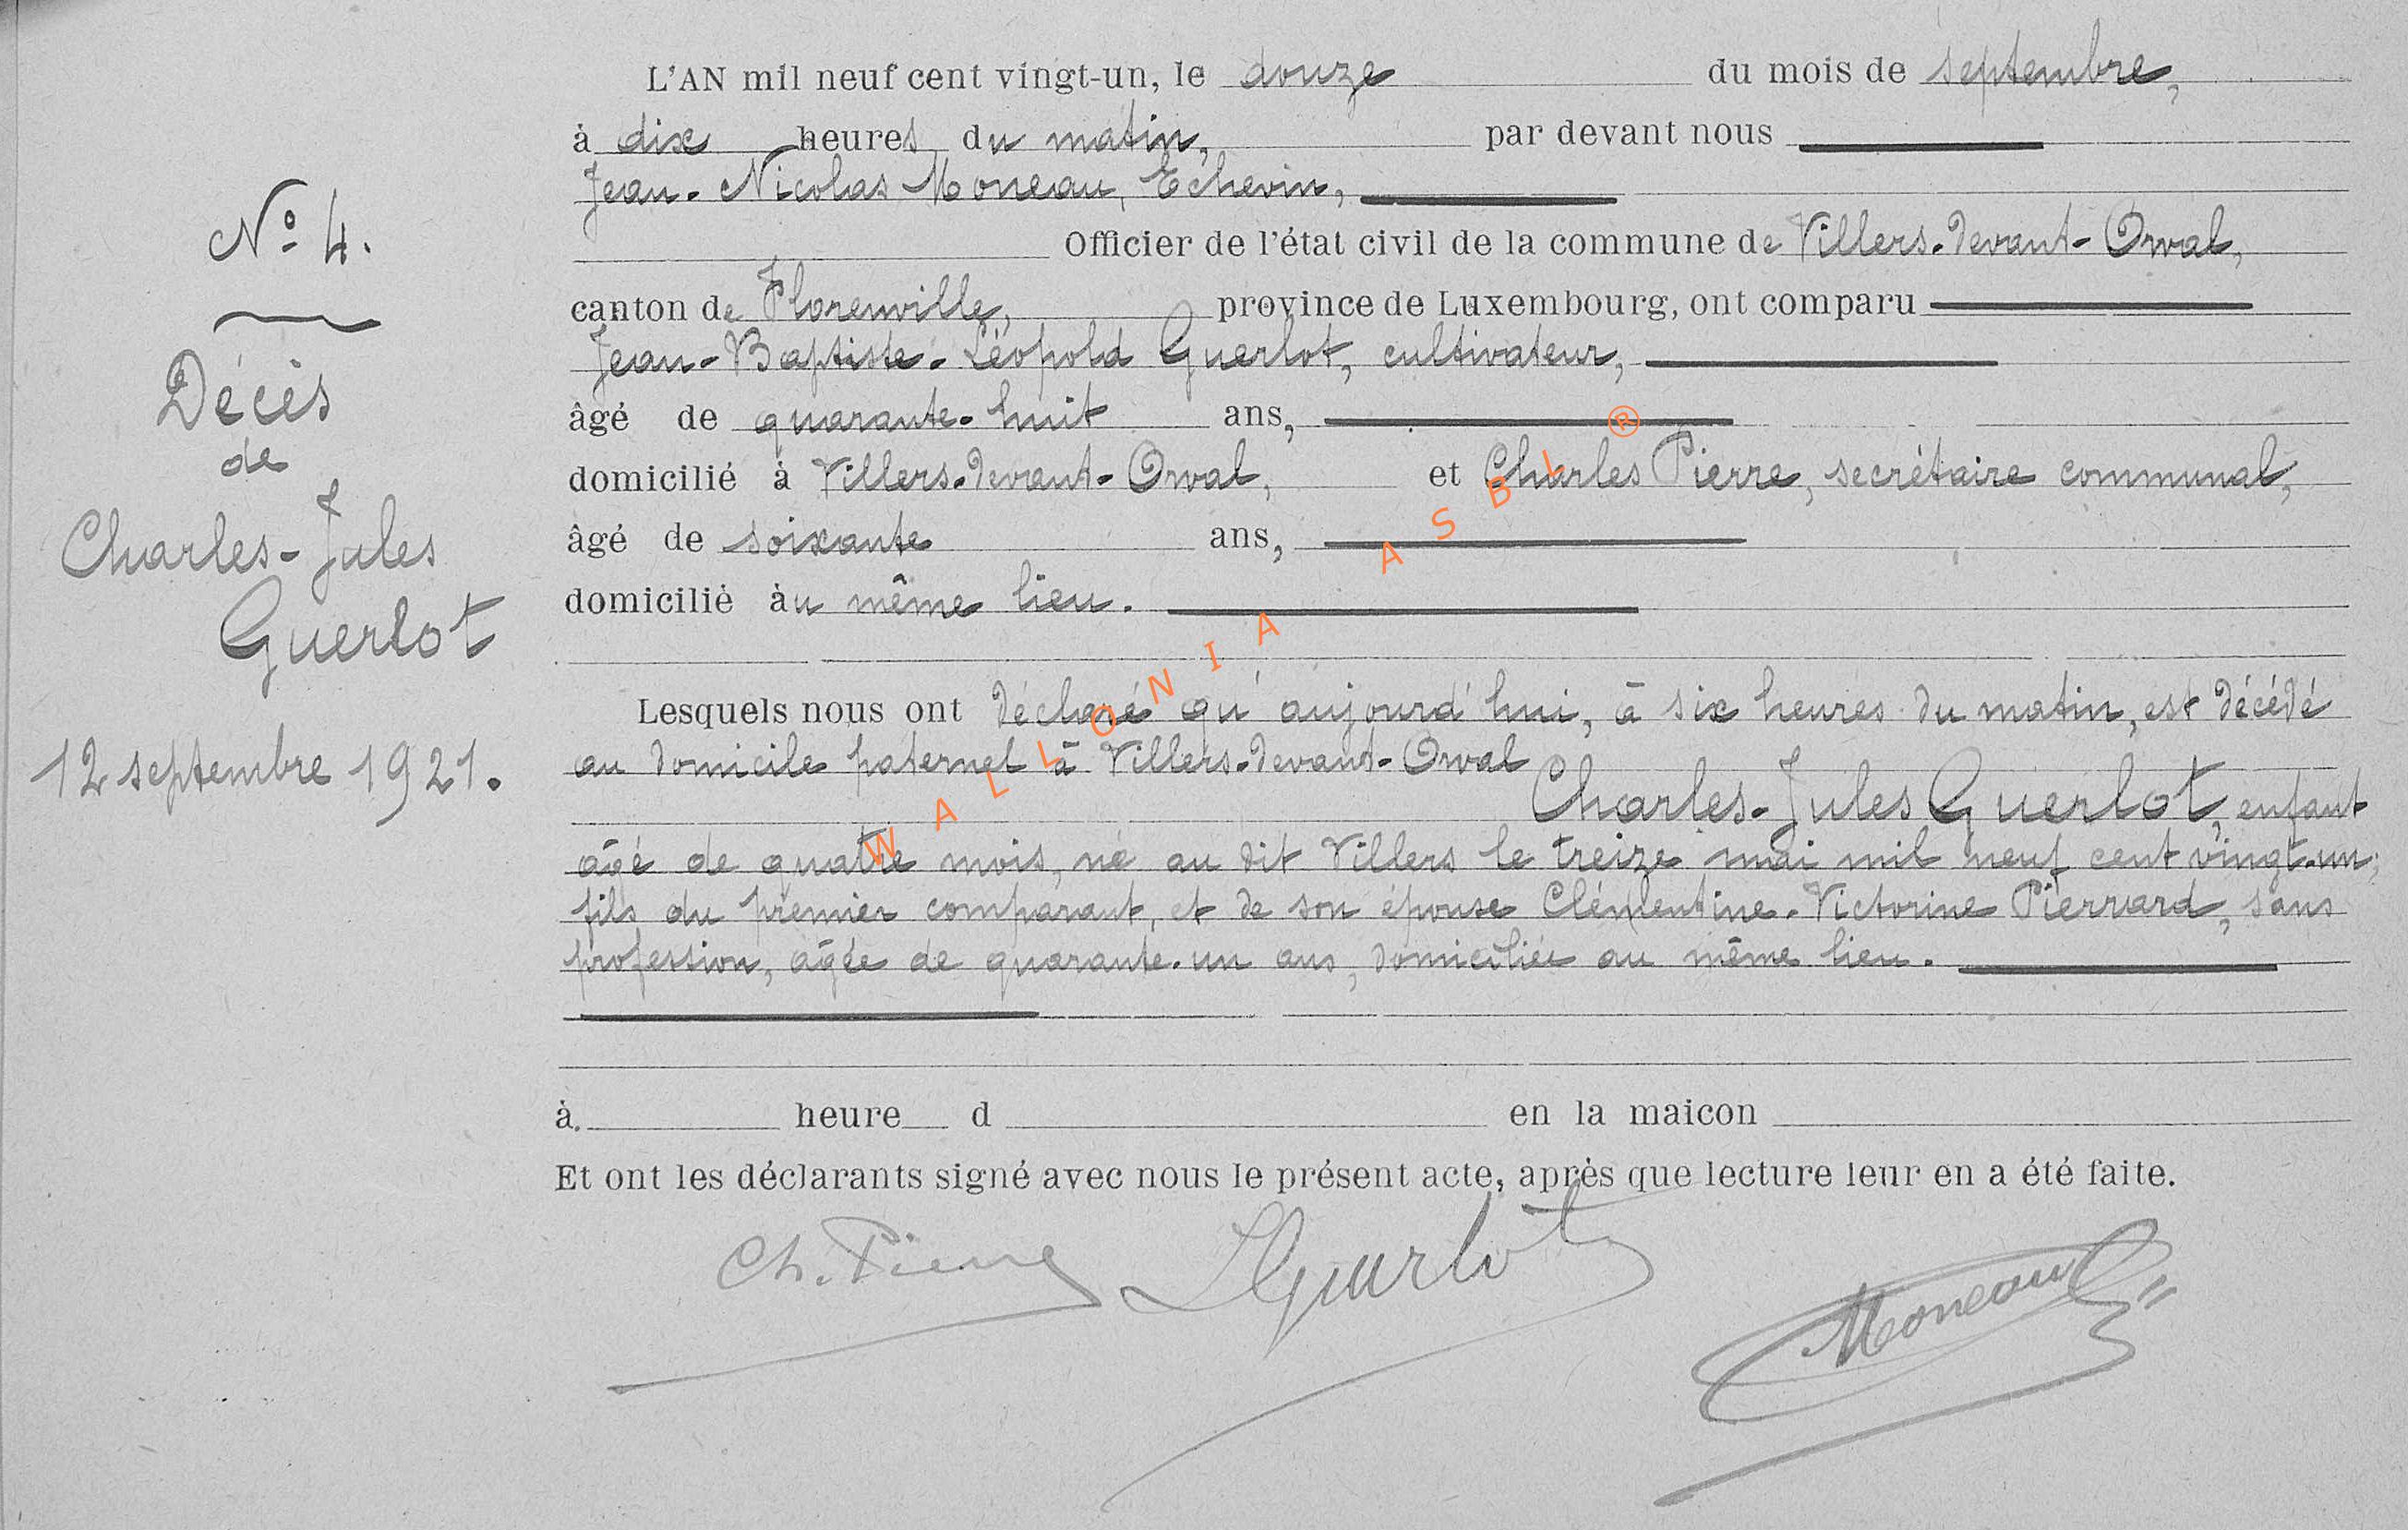 N° 4.
Décès
de
Charles-Jules
Guerlot
12 septembre 1921.
L'AN mil neuf cent vingt-un, le douze du mois de septembre,
à dix heures du matin, par devant nous
Jean-Nicolas Moneau, Echevin,
Officier de l'état civil de la commune de Villers-devant-Orval,
canton de Florenville, province de Luxembourg, ont comparu
Jean-Baptiste-Léopold Guerlot, cultivateur,
âgé de quarante-huit ans,
domicilié à Villers-devant-Orval, et Charles Pierre, secrétaire communal,
âgé de soixante ans,
domicilié àu même lieu.
Lesquels nous ont déclaré qu'aujourd'hui, à six heures du matin, est décédé
au domicile paternel à Villers-devant-Orval
Charles-Jules Guerlot, enfant
âgé de quatre mois, né au dit Villers le treize mai mil neuf cent vingt-un,
fils du premier comparant, et de son épouse Clémentine-Victorine Pierrard, sans
profession, âgée de quarante-un ans, domiciliée au même lieu.
à heure d en la maicon
Et ont les déclarants signé avec nous le présent acte, après que lecture leur en a été faite.
Ch. Pierre LGuerlot Moneau
WALLONIA ASBL ®